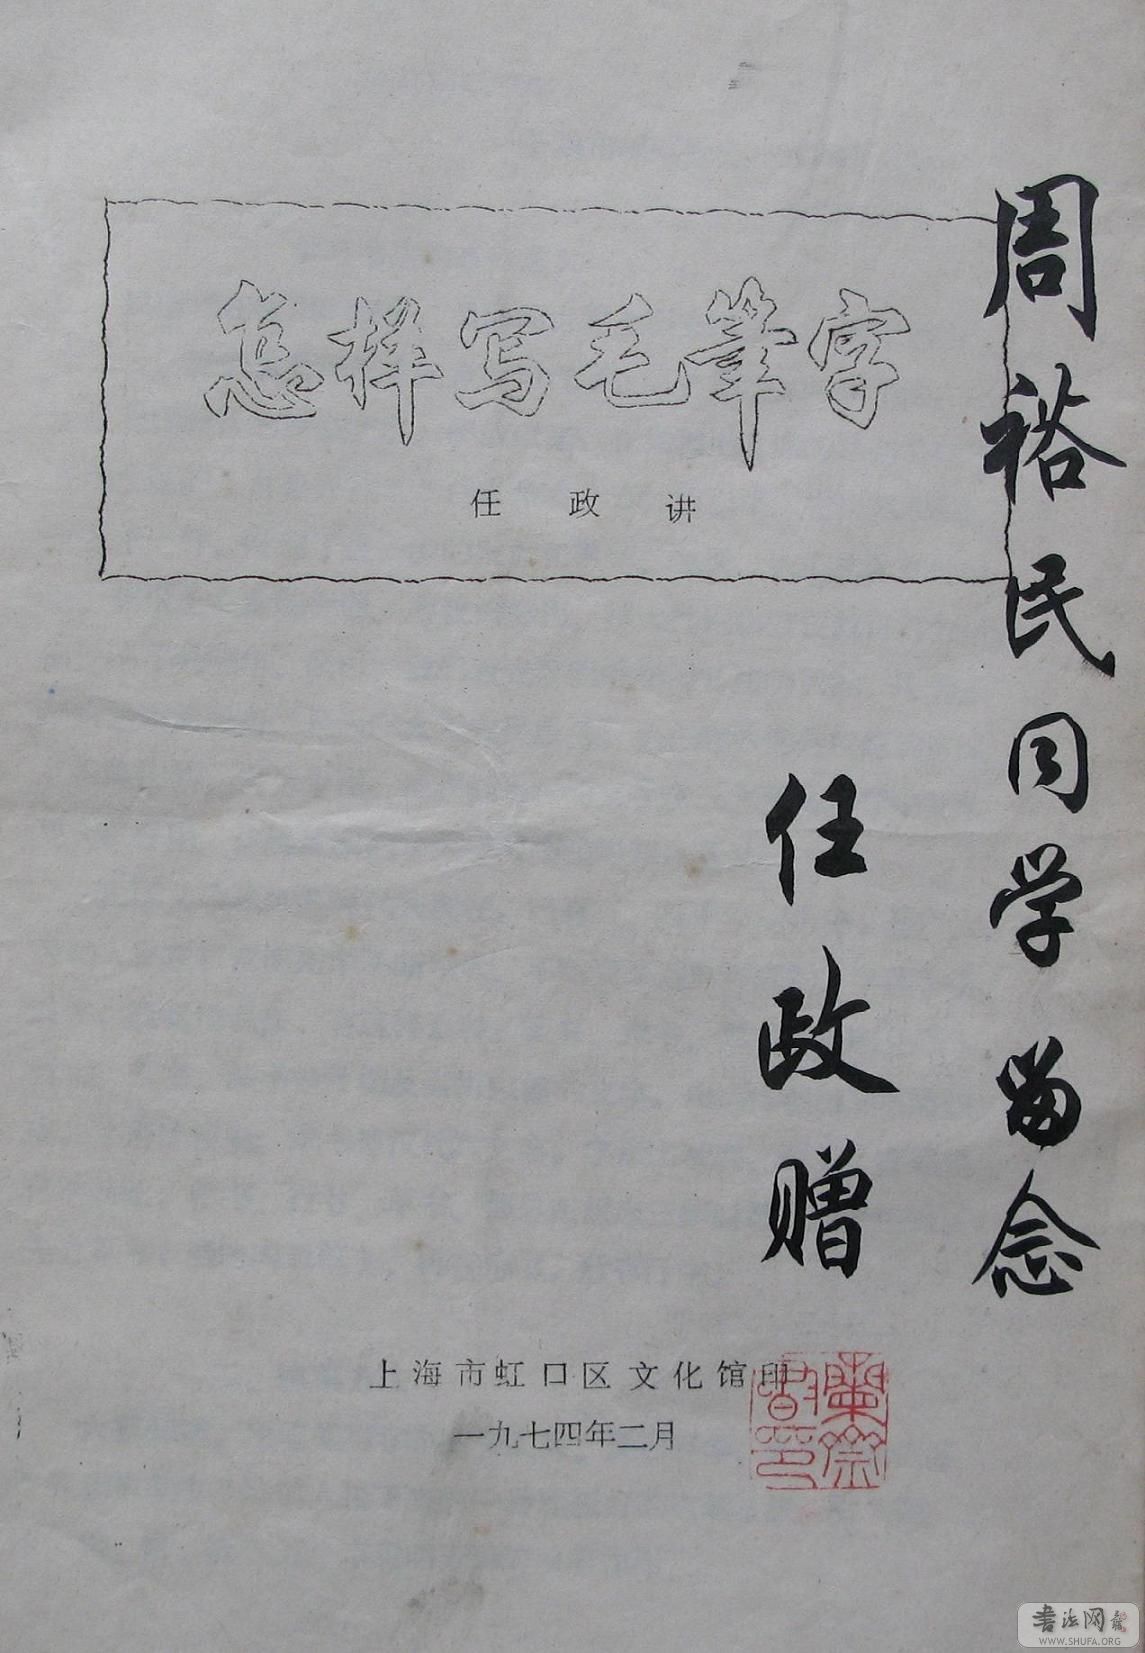 怎样写毛筆字
任政讲
周裕民同学留念
任政赠
上海市虹口区文化馆印
一九七四年二月
书法网
WWW.SHUFA.ORG